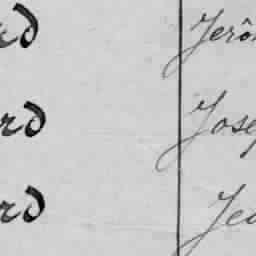 rd Jérô
rd Josep
rd Jea